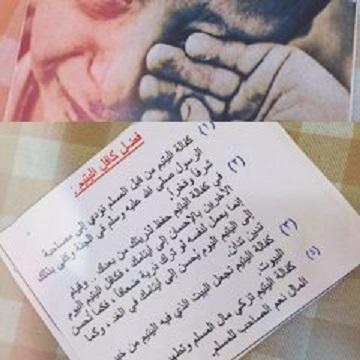 فضل كافل اليتيم
(١)
كفالة اليتيم من قبل المسلم تؤدي إلى مصاحبة
الرسول صلى الله عليه وسلم في الجنة وكفى بذلك
شرفا وفخرا
(٢)
في كفالة اليتيم حفظ لذريتك من بعدك وقيام
الآخرين بالإحسان إلى أيتامك فكافل اليتيم اليوم
إنما يعمل لنفسه لو ترك ذرية ضعافا فكما يحسن
إلى اليتيم اليوم يحسن إلى أيتامك في الغد وكما
تدين تدان
(٣)
كفالة اليتيم تجعل البيت الذي فيه اليتيم من خير
البيوت
(٤)
كفالة اليتيم تزكي مال المسلم
المال نعم الصاحب للمسلم